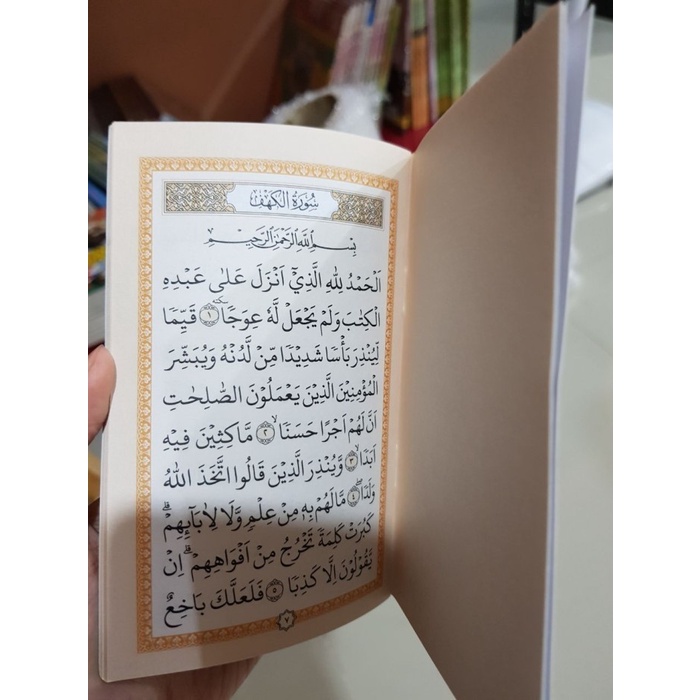 سُورَةُ الْكَهْفِ
بِسْمِ اللّٰهِ الرَّحْمٰنِ الرَّحِيْمِ
اَلْحَمْدُ لِلّٰهِ الَّذِيْٓ اَنْزَلَ عَلٰى عَبْدِهِ
الْكِتٰبَ وَلَمْ يَجْعَلْ لَّهٗ عِوَجًا ۜ ١ قَيِّمًا
لِّيُنْذِرَ بَأْسًا شَدِيْدًا مِّنْ لَّدُنْهُ وَيُبَشِّرَ
الْمُؤْمِنِيْنَ الَّذِيْنَ يَعْمَلُوْنَ الصّٰلِحٰتِ
اَنَّ لَهُمْ اَجْرًا حَسَنًاۙ ٢ مَّاكِثِيْنَ فِيْهِ
اَبَدًاۙ ٣ وَّيُنْذِرَ الَّذِيْنَ قَالُوا اتَّخَذَ اللّٰهُ
وَلَدًاۖ ٤ مَا لَهُمْ بِهٖ مِنْ عِلْمٍ وَّلَا لِاٰبَاۤىِٕهِمْۗ
كَبُرَتْ كَلِمَةً تَخْرُجُ مِنْ اَفْوَاهِهِمْۗ اِنْ
يَّقُوْلُوْنَ اِلَّا كَذِبًا ٥ فَلَعَلَّكَ بَاخِعٌ
٧